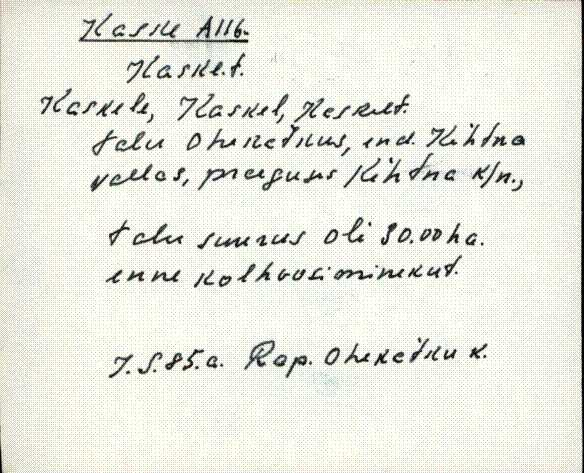 Kaske A116.
Kaske.t.
Kaskele, Kaskel, Kaskelt.
talu Ohekatkus, end. Kihtna
vallas, praeguses Kihtna k/n.,
talu suurus oli 30.00 ha.
enne kolhoosiminekut.
J. S. 85. a. Rap. Ohekatku k.